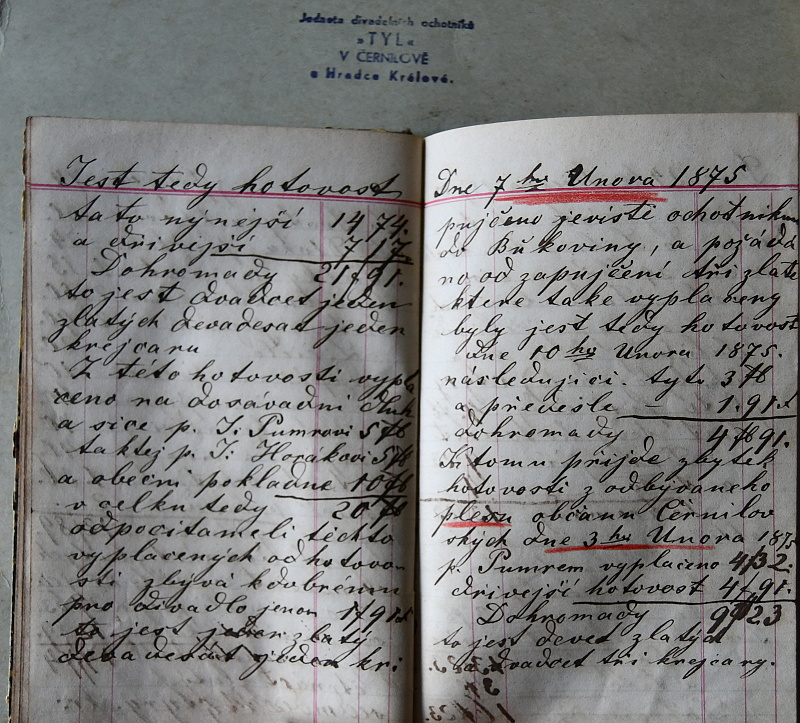 Jednota divadelních ochotníků
»TYL«
V ČERNILOVĚ
u Hradce Králové.
Jest tedy hotovost
tato nynejší 14 74.
a dřívejší 7 17.
Dohromady 21 91.
to jest dvadcet jeden
zlatých devadesat jeden
krejcaru
Z této hotovosti vypla
ceno na dosavadní dluh
a sice p. J: Pumrovi 5 fl
taktej p. J: Horakovi 5 fl
a obecní pokladne 10 fl
v celku tedy 20 fl
odpocitameli těchto
vyplacených od hotovo
sti zbývá k dobrému
pro divadlo jenom 1 91
to jest jeden zlatý
devadesát jeden kri
Dne 7 ho Unora 1875
pujčeno jevistě ochotnikum
do Bukoviny, a požádá
no od zapujčení tři zlate
ktere take vyplaceny
byly jest tedy hotovost
dne 10 ho Unora 1875.
následující. tyto 3 fl
a přešešle 1.91.
dohromady 4 fl 91.
K tomu přijde zbytek
hotovosti z odbývaneho
plesu občanu Černilov
ských dne 3 ho Unora 1875
p. Pumrem vyplaceno 4/32.
dřívejší hotovost 4 91.
Dohromady 9 23
to jest devet zlatých
a dvadcet tři krejcary.